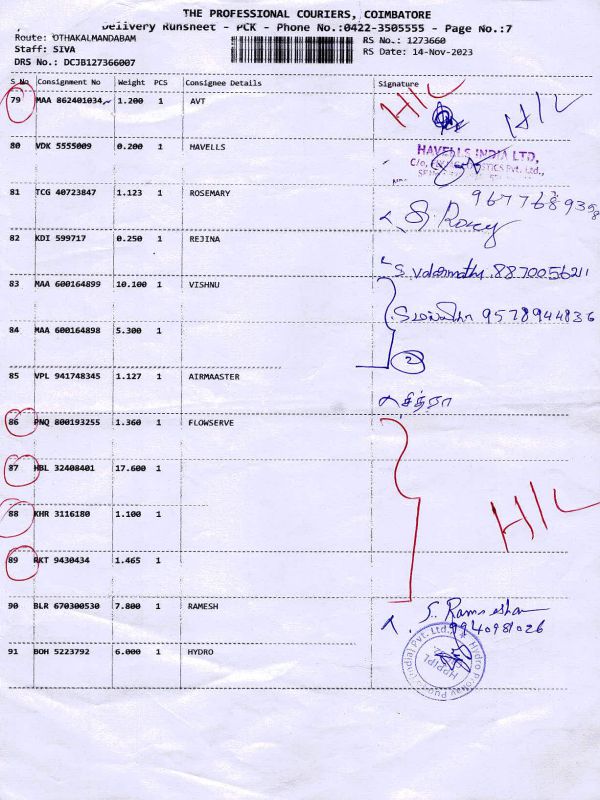 THE PROFESSIONAL COURIERS, COIMBATORE
Delivery Runsheet - PCK - Phone No.:0422-3505555 - Page No.:7
Route: OTHAKALMANDABAM
RS No.: 1273660
Staff: SIVA
RS Date: 14-Nov-2023
DRS No.: DCJB127366007
S No Consignment No Weight PCS Consignee Details Signature
79 MAA 862401034 1.200 1 AVT H/L H/L
80 VDK 5555009 0.200 1 HAVELLS
HAVELLS INDIA LTD,
81 TCG 40723847 1.123 1 ROSEMARY
82 KDI 599717 0.250 1 REJINA
8870056211
83 MAA 600164899 10.100 1 VISHNU
9578944836
84 MAA 600164898 5.300 1
2
85 VPL 941748345 1.127 1 AIRMAASTER
சித்ரா
86 PNQ 800193255 1.360 1 FLOWSERVE
87 HBL 32408401 17.600 1
88 KHR 3116180 1.100 1 H/L
89 RKT 9430434 1.465 1
90 BLR 670300530 7.800 1 RAMESH
9940981026
91 BOH 5223792 6.000 1 HYDRO